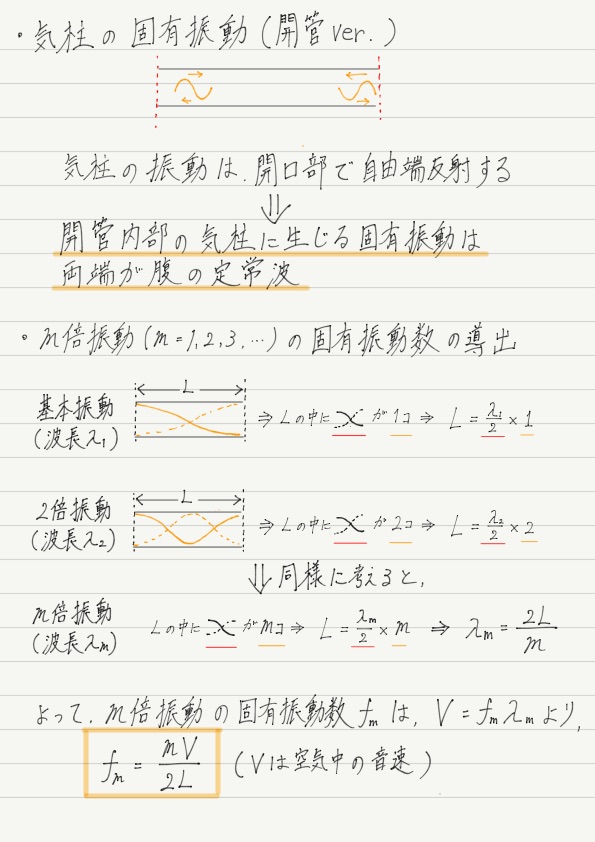 ・気柱の固有振動(開管ver.)
気柱の振動は、開口部で自由端反射する
⇓
開管内部の気柱に生じる固有振動は
両端が腹の定常波
・m倍振動(m=1,2,3,…)の固有振動数の導出
L
基本振動
(波長λ₁)
⇒ Lの中に が1コ ⇒ L = λ₁/2 × 1
L
2倍振動
(波長λ₂)
⇒ Lの中に が2コ ⇒ L = λ₂/2 × 2
⇓ 同様に考えると,
m倍振動
(波長λₘ)
Lの中に がmコ ⇒ L = λₘ/2 × m ⇒ λₘ = 2L/m
よって、m倍振動の固有振動数fₘは, V = fₘλₘより,
fₘ = mV/2L (Vは空気中の音速)